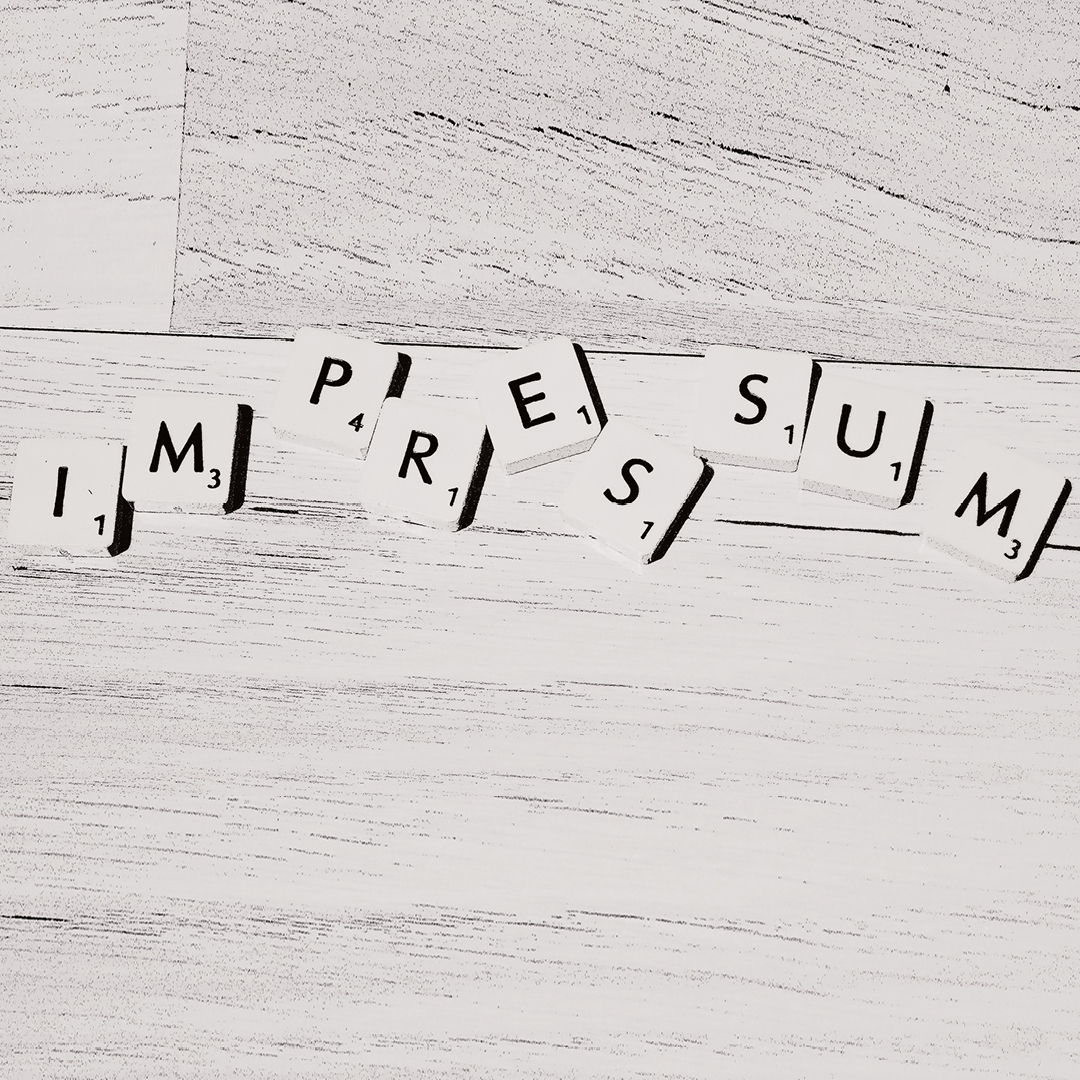 I1 M3 P4 R1 E1 S1 S1 U1 M3